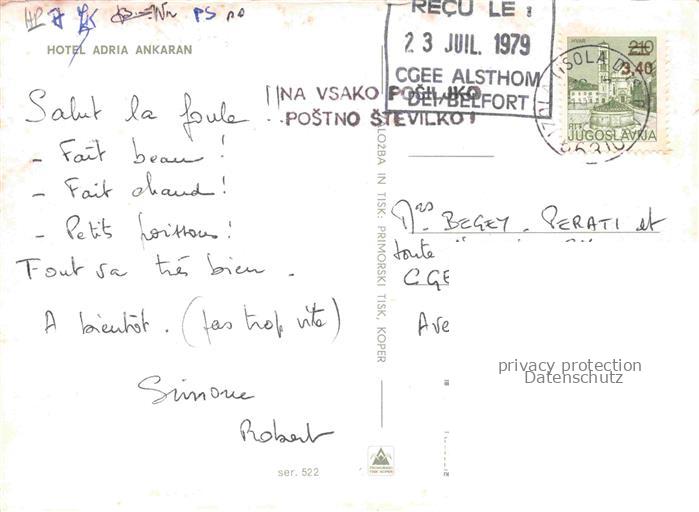 HOTEL ADRIA ANKARAN
Salut la foule
- Fait beau!
- Fait chaud!
- Petits poissons!
Tout va très bien.
A bientôt. (pas trop vite)
Simone
Robert
ser. 522
NA VSAKO POŠILJKO
POŠTNO ŠTEVILKO!
ZALOŽBA IN TISK: PRIMORSKI TISK, KOPER
REÇU LE :
23 JUIL. 1979
CGEE ALSTHOM
DEI/BELFORT
HVAR
2.10
3.40
JUGOSLAVIJA
IZOLA ISOLA D
66310
Mrs BEGEY. PERATI et
toute
CGE
Ave
privacy protection
Datenschutz